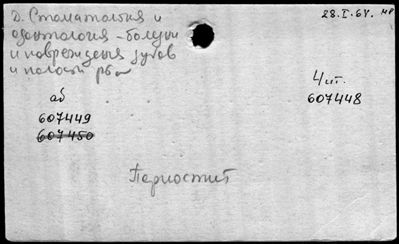 2. Стоматология и
одонтология - болезни
и повреждения зубов
и полости рта
28.I.64. нр
4 шт.
607448
аб
607449
607450
Периостит